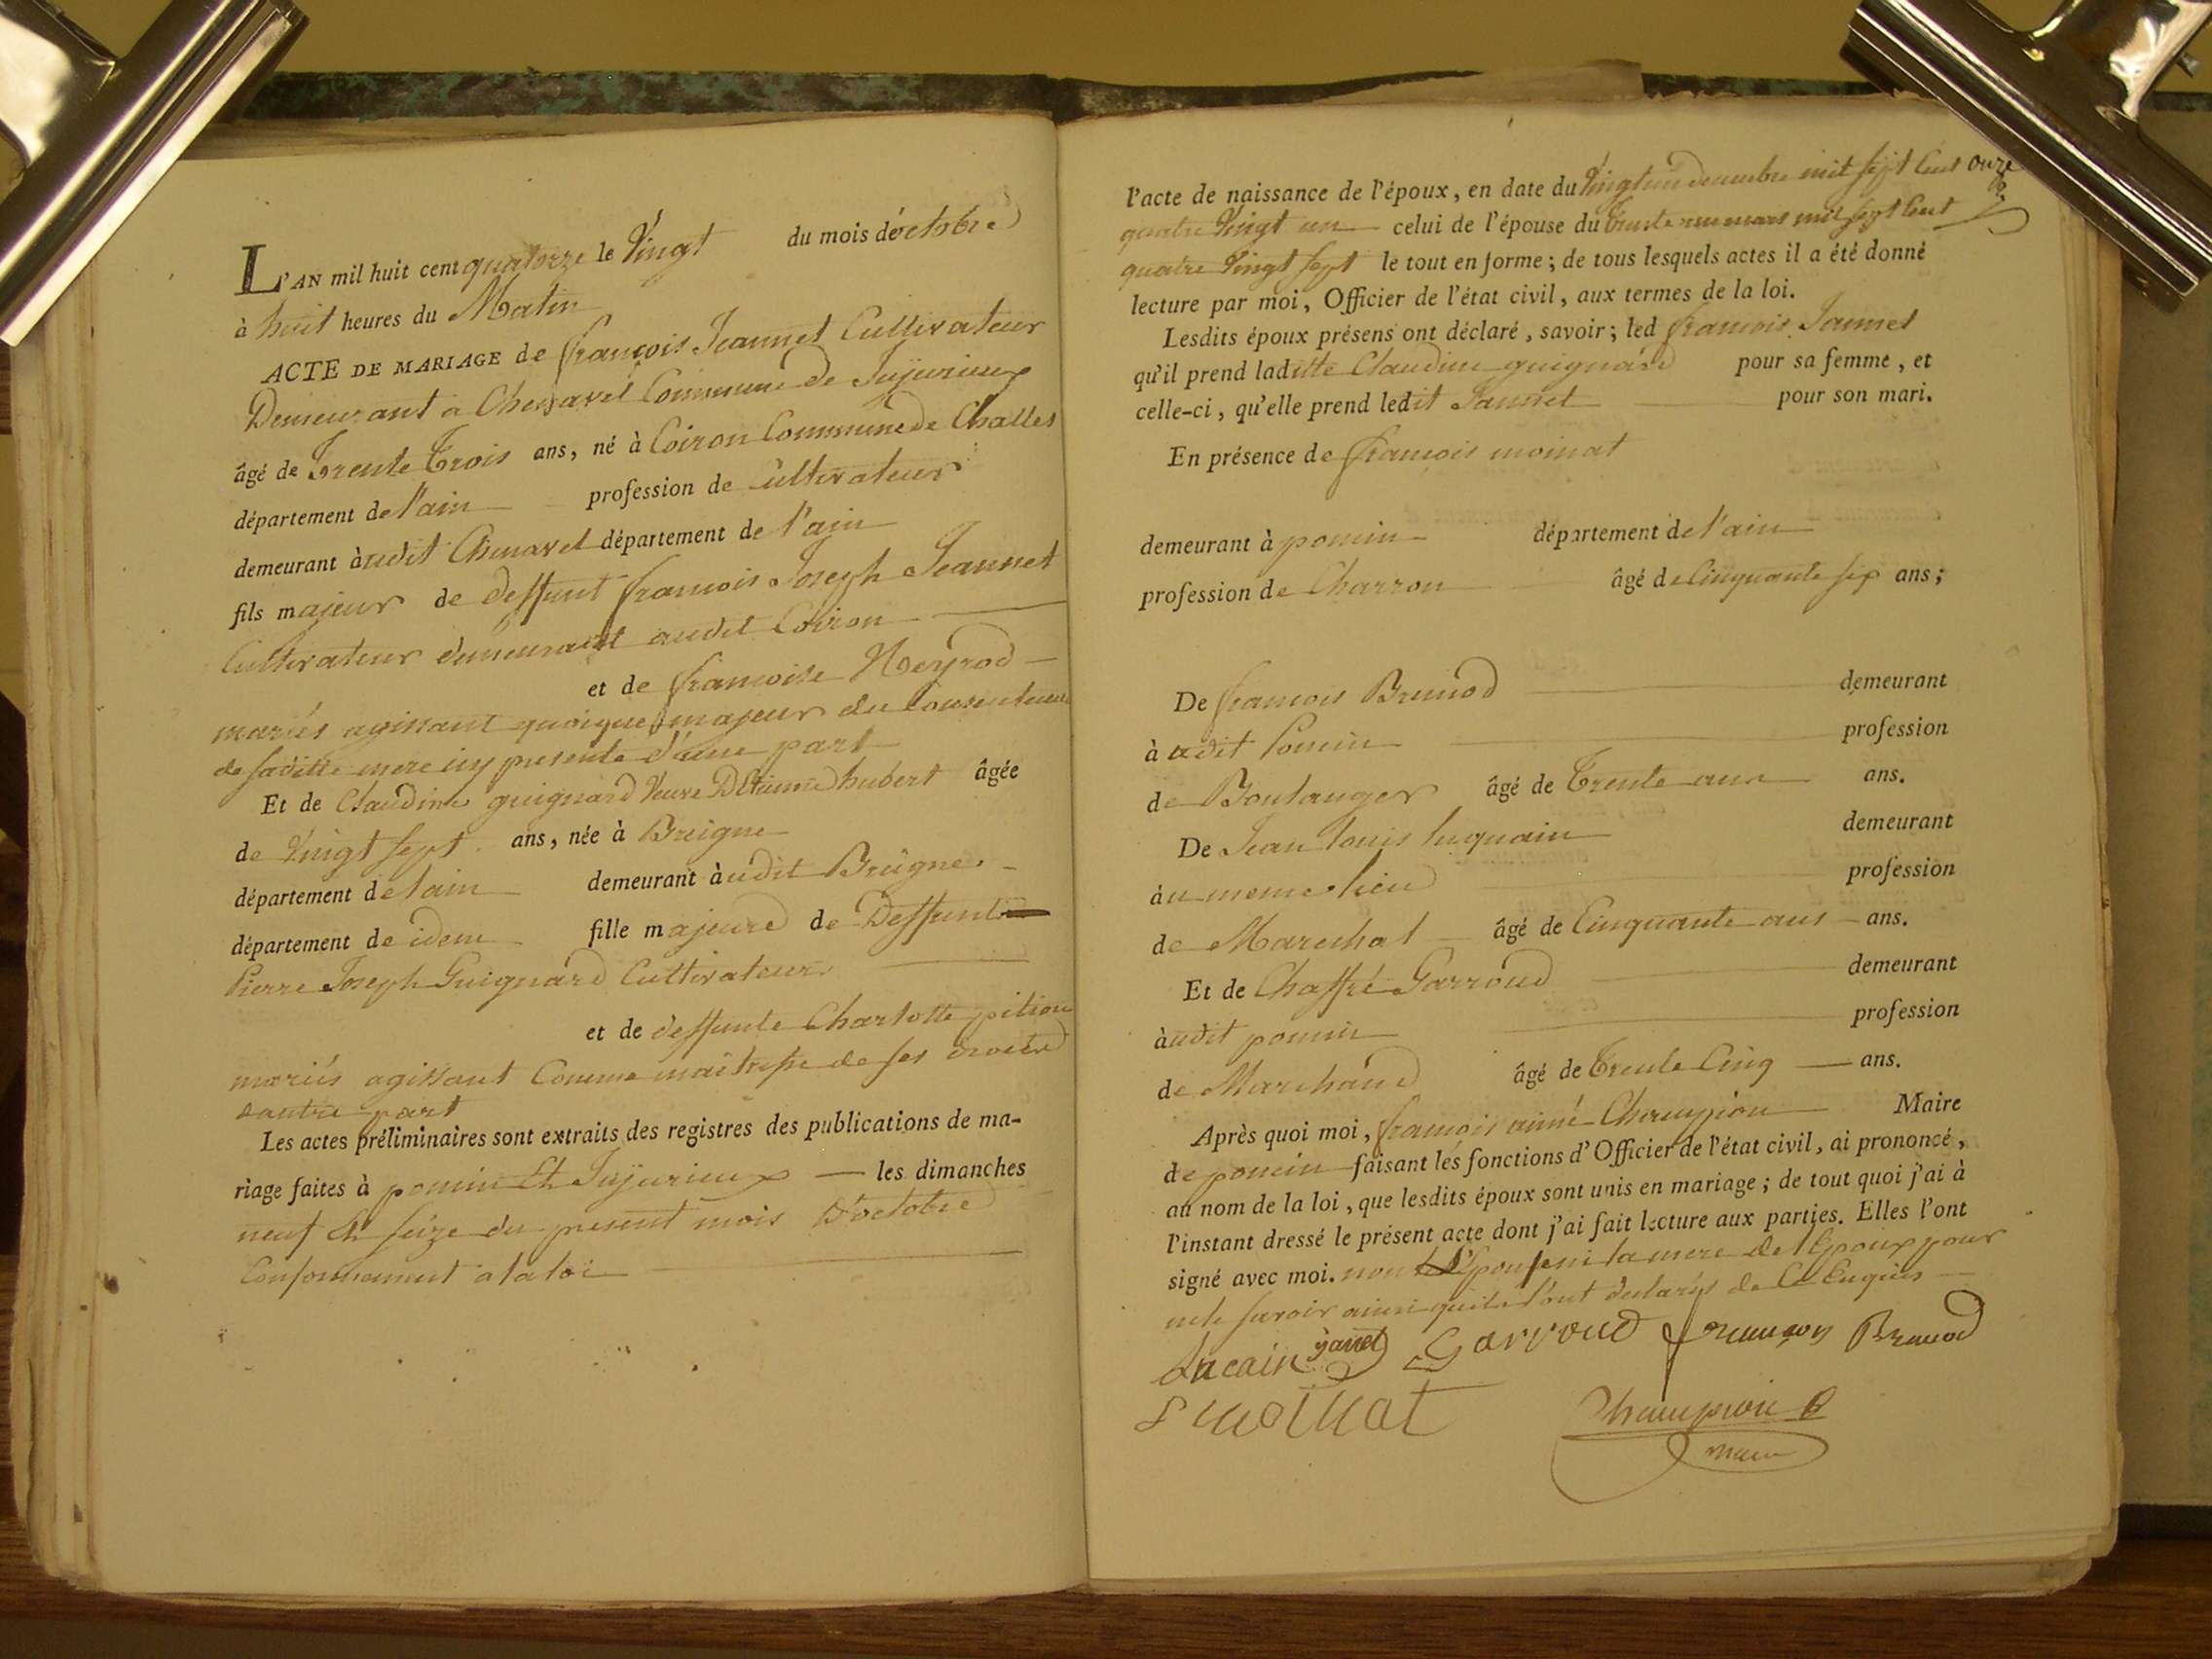 L'AN mil huit cent quatorze le Vingt du mois d'octobre
à huit heures du Matin
ACTE DE MARIAGE de françois Jeannet Cultivateur
Demeurant a Chenavel Commune de Jujurieux
âgé de Trente Trois ans, né à Coiron Commune de Challes
département de l'ain profession de Cultivateur
demeurant àudit Chenavel département de l'ain
fils majeur de deffunt francois Joseph Jeannet
Cultivateur demeurant audit Coiron
et de francoise Neyrod
mariés agissant quoique majeur du Consentement
de saditte mere icy presente d'une part
Et de Claudine guignard Veuve D'Etienne hubert âgée
de Vingt sept ans, née à Breigne
département de l'ain demeurant àudit Breigne
département de idem fille majeure de Deffunt
Pierre Joseph Guignard Cultivateur
et de deffunte Charlotte pition
mariés agissant Comme maîtresse de ses droits
d'autre part
Les actes préliminaires sont extraits des registres des publications de ma-
riage faites à poncin Et Jujurieux les dimanches
neuf Et seize du present mois D'octobre
Conformement a la loi
l'acte de naissance de l'époux, en date du Vingt un mil sept Cent onze
quatre Vingt un celui de l'épouse du Trente mars mil sept Cent
quatre Vingt sept le tout en forme; de tous lesquels actes il a été donné
lecture par moi, Officier de l'état civil, aux termes de la loi.
Lesdits époux présens ont déclaré, savoir; led francois Jannet
qu'il prend laditte Claudine guignard pour sa femme, et
celle-ci, qu'elle prend ledit Jannet pour son mari.
En présence de françois moinat
demeurant à poncin département de l'ain
profession de Charron âgé de Cinquante six ans;
De francois Brunod demeurant
à udit Poncin profession
de Boulanger âgé de Trente ans ans.
De Jean Louis luquain demeurant
àu meme lieu profession
de Marechal âgé de Cinquante ans ans.
Et de Chaffré Garroud demeurant
àudit poncin profession
de Marchand âgé de Trente Cinq ans.
Après quoi moi, francois aimé Champion Maire
de poncin faisant les fonctions d'Officier de l'état civil, ai prononcé,
au nom de la loi, que lesdits époux sont unis en mariage; de tout quoi j'ai à
l'instant dressé le présent acte dont j'ai fait lecture aux parties. Elles l'ont
signé avec moi. non L'Epouse ni la mere de l'Epoux pour
ne le savoir ainsi quelles l'ont declaré de Ce Enquises
Lucain Janet Garroud françois Brunod
f moinat Champion
maire